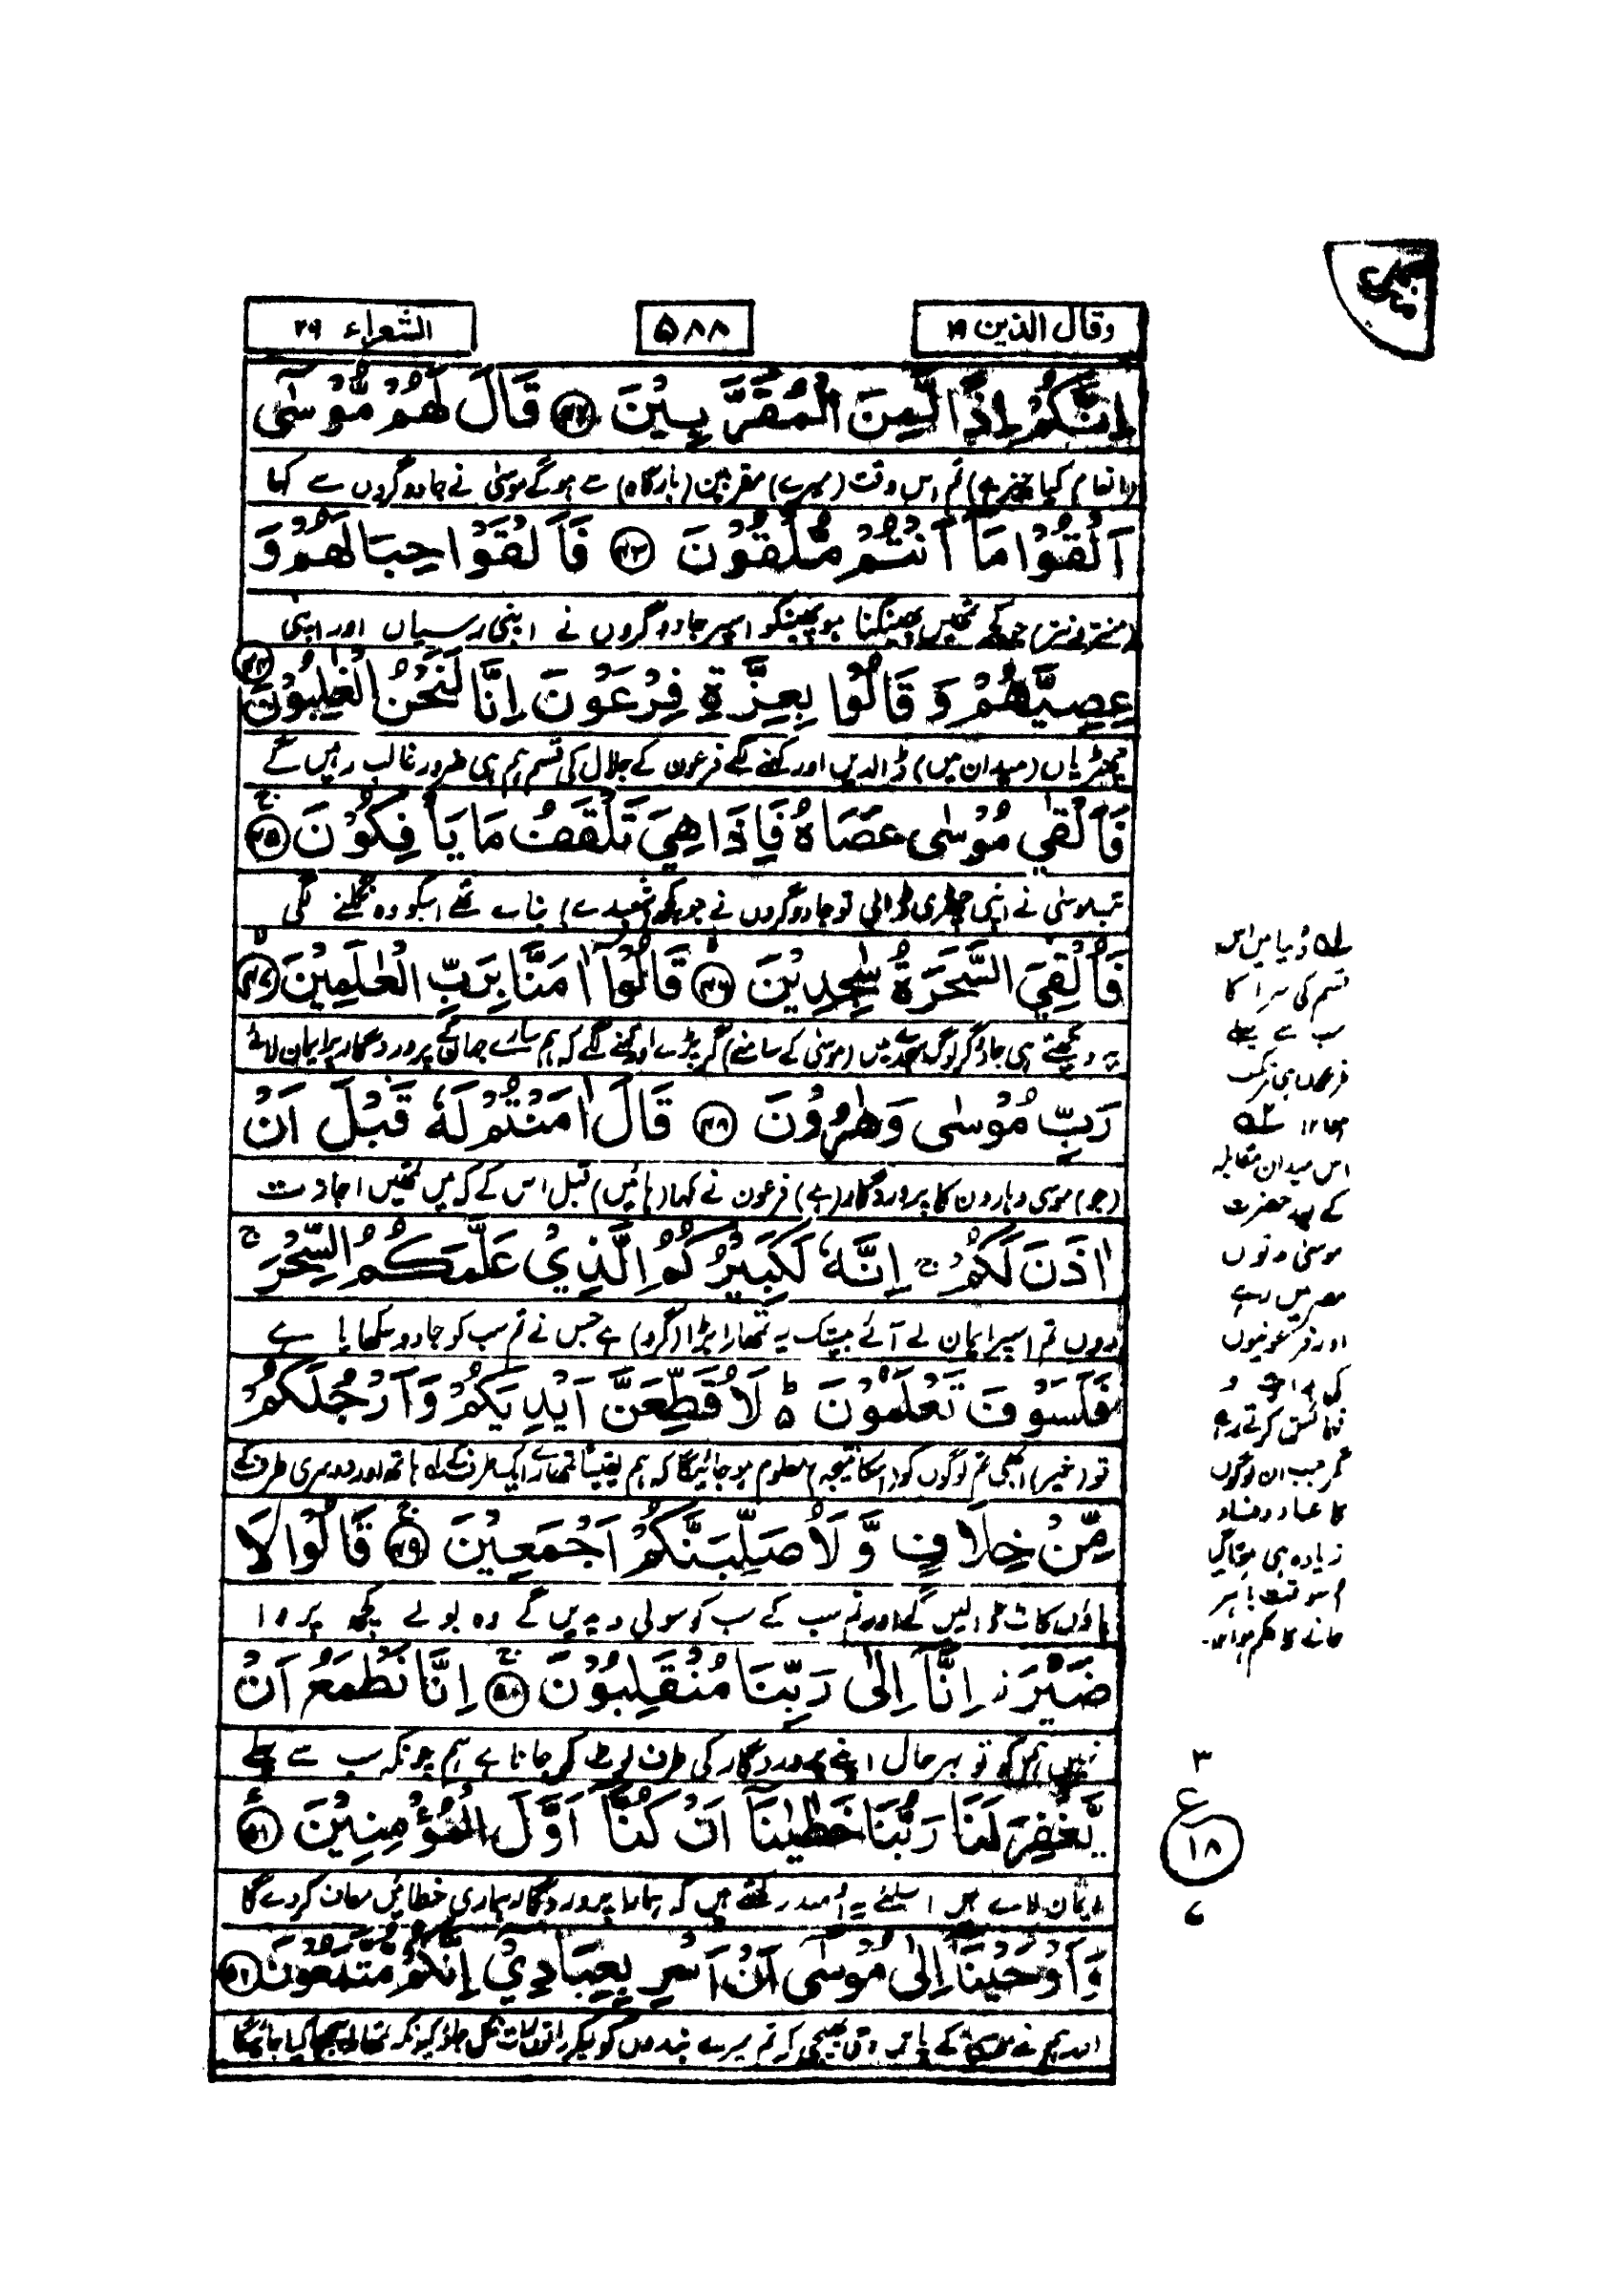 وقال الذین ۱۹
۵۸۸
الشعراء ۲۶
اِنَّكُمْ اِذًا لَّمِنَ الْمُقَرَّبِيْنَ ﴿۴۲﴾ قَالَ لَهُمْ مُّوْسٰٓى
انعام کیا تم اس وقت (میرے) مقربین (بارگاہ) سے ہوگے موسیٰ نے جادوگروں سے کہا
اَلْقُوْا مَآ اَنْتُمْ مُّلْقُوْنَ ﴿۴۳﴾ فَاَلْقَوْا حِبَالَهُمْ وَ
(منتر ونتر) جو کچھ تمھیں پھینکنا ہو پھینکو اسپر جادوگروں نے اپنی رسیاں اور اپنی
عِصِيَّهُمْ وَ قَالُوْا بِعِزَّةِ فِرْعَوْنَ اِنَّا لَنَحْنُ الْغٰلِبُوْنَ ﴿۴۴﴾
چھڑیاں (میدان میں) ڈالدیں اور کہنے لگے فرعون کے جلال کی قسم ہم ہی ضرور غالب رہیں گے
فَاَلْقٰى مُوْسٰى عَصَاهُ فَاِذَا هِيَ تَلْقَفُ مَا يَاْفِكُوْنَ ﴿۴۵﴾ ج
تب موسیٰ نے اپنی چھڑی ڈالی تو جادوگروں نے جو کچھ (شعبدے) بنائے تھے اسکو وہ نگلنے لگی
فَاُلْقِيَ السَّحَرَةُ سٰجِدِيْنَ ﴿۴۶﴾ لا قَالُوْٓا اٰمَنَّا بِرَبِّ الْعٰلَمِيْنَ ﴿۴۷﴾ لا
یہ دیکھتے ہی جادوگر لوگ سجدے میں (موسیٰ کے سامنے) گر پڑے اور کہنے لگے کہ ہم سارے جہان کے پروردگار پر ایمان لائے
رَبِّ مُوْسٰى وَهٰرُوْنَ ﴿۴۸﴾ قَالَ اٰمَنْتُمْ لَهٗ قَبْلَ اَنْ
(جو) موسی و ہارون کا پروردگار (ہے) فرعون نے کہا (ہائیں) قبل اس کے کہ میں تمھیں اجازت
اٰذَنَ لَكُمْ ج اِنَّهٗ لَكَبِيْرُكُمُ الَّذِيْ عَلَّمَكُمُ السِّحْرَ ج
دوں تم اسپر ایمان لے آئے بیشک یہ تمھارا بڑا (گرو) ہے جس نے تم سب کو جادو سکھایا ہے
فَلَسَوْفَ تَعْلَمُوْنَ ط لَاُقَطِّعَنَّ اَيْدِيَكُمْ وَ اَرْجُلَكُمْ
تو (خیر) ابھی تم لوگوں کو (اسکا نتیجہ) معلوم ہو جائیگا کہ ہم یقیناً تمھارے ایک طرف کے ہاتھ اور دوسری طرف کے
مِّنْ خِلَافٍ وَّ لَاُصَلِّبَنَّكُمْ اَجْمَعِيْنَ ﴿۴۹﴾ ج قَالُوْا لَا
پاؤں کاٹ ڈالیں گے اور تم سب کے سب کو سولی دیدیں گے وہ بولے کچھ پروا
ضَيْرَ ز اِنَّآ اِلٰى رَبِّنَا مُنْقَلِبُوْنَ ﴿۵۰﴾ ج اِنَّا نَطْمَعُ اَنْ
نہیں ہم کو تو بہر حال اپنے پروردگار کی طرف لوٹ کر جانا ہے ہم چونکہ سب سے پہلے
يَّغْفِرَ لَنَا رَبُّنَا خَطٰيٰنَآ اَنْ كُنَّآ اَوَّلَ الْمُؤْمِنِيْنَ ﴿۵۱﴾ ع
ایمان لائے ہیں اسلئے یہ اُمید رکھتے ہیں کہ ہمارا پروردگار ہماری خطائیں معاف کردے گا
وَ اَوْحَيْنَآ اِلٰى مُوْسٰٓى اَنْ اَسْرِ بِعِبَادِيْٓ اِنَّكُمْ مُّتَّبَعُوْنَ ﴿۵۲﴾
اور ہم نے موسیٰ کے پاس وحی بھیجی کہ تم میرے بندوں کو لیکر راتوں رات نکل جاؤ کیونکہ تمھارا پیچھا کیا جائیگا
لہ دُنیا میں اس
قسم کی سزا کا
سب سے پہلے
فرعون ہی مرتکب
ہوا ۱۲
اس میدان مقابلہ
کے بعد حضرت
موسیٰ دنوں
مصر میں رہے
اور فرعونیوں
کی و
فہمائش کرتے رہے
مگر جب ان لوگوں
کا عناد و فساد
زیادہ ہی ہوتا گیا
اسوقت باہر
جانے کا حکم ہوا ۱۲
۳
ع
۱۸